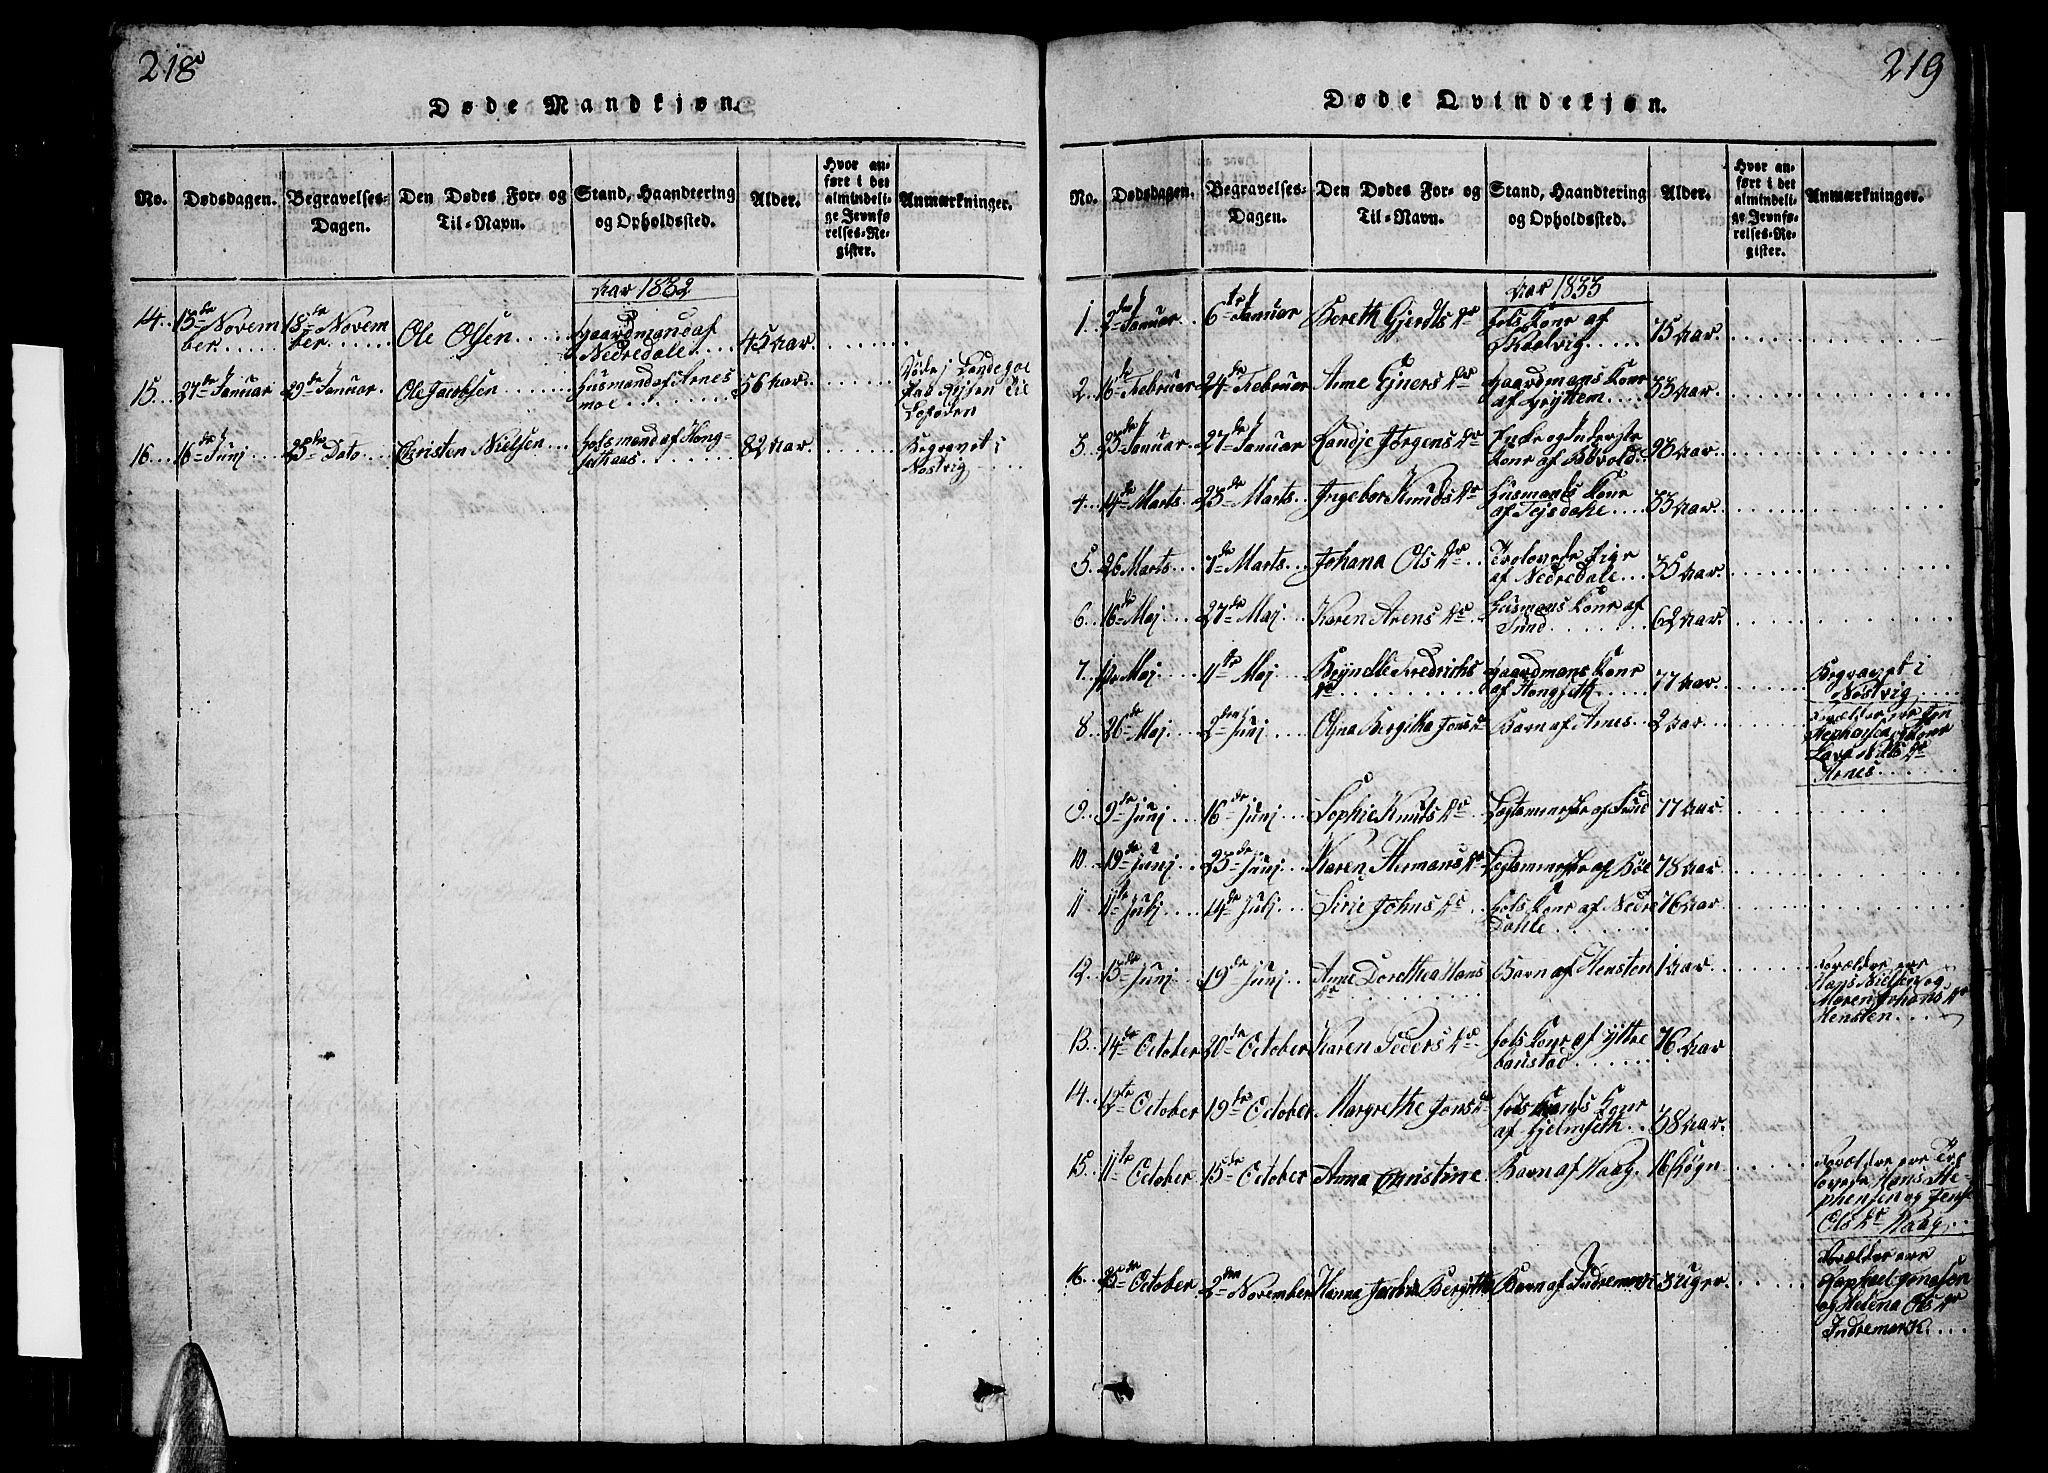 218
Døde Mandkjøn.
No.
Dødsdagen.
Begravelses-
Dagen.
Den Dødes For- og
Til-Navn.
Stand, Haandtering
og Opholdssted.
Alder.
Hvor an-
ført i det
almindeli-
ge Jevnfø-
relses-Re-
gister.
Anmærkninger.
Aar 1832
14. 15de Novem
ber
18de Novem
ber
Ole Olsen
Gaardmand af
Nedredale
45 Aar
15. 27de Januar
29de Januar
Ole Jacobsen
Huusmand af Arnes
moe
56 Aar
Lofoden
16. 16de Junj
23de Dato
Christen Nielsen
82 Aar
Begravet i
Nostvig
219
Døde Qvindekjøn.
No.
Dødsdagen.
Begravelses-
Dagen.
Den Dødes For- og
Til-Navn.
Stand, Haandtering
og Opholdssted.
Alder.
Hvor an-
ført i det
almindeli-
ge Jevnfø-
relses-Re-
gister.
Anmærkninger.
Aar 1833
1. 2den Januar
6te Januar
Bereth Gjerdts Dr
75 Aar
2. 16de Februar
24de Februar
Anne Ejners Dr
Gaardmans Konr
af Gryttem
33 Aar
3. 23de Januar
27de Januar
Randje Jørgens Dr
Konr af Bøvold
4. 14de Marts
23de Marts
Ingebor Knuds Dr
Husmands Konr
33 Aar
5. 26 Marts
7de Marts
Johana Ols Dr
af Nedredale
35 Aar
6. 16de Maj
27de Maj
Karen Arens Dr
Husmans Konr af
Sund
62 Aar
7. Maj
11te Maj
Fredrichs
Dr
Gaardmans Konr
af Hongseth
77 Aar
Begravet i
Nostvig
8. 26de Maj
2den Junj
Olina Bergitha Jons Dr
Barn af Arnes
2 Aar
Arnes
9. 9de Junj
16de Junj
Sophie Knuds Dr
Legtsmerske af Sund
77 Aar
10. 19de Junj
23de Junj
Karen Hermans Dr
Legtsmerske af Böe
78 Aar
11. 11te Julj
14de Julj
Sirie Johns Dr
Fols Konr af Nedre
Dahle
76 Aar
12. 13de Junj
19de Junj
Anne Dorothea Hans
Dr
Barn af Hensten
1 Aar
Forælder ere
Hans Nielsen og
Maren Johans Dr
Hensten
13. 14de October
20de October
Karen Peders Dr
Fols Konr af Yttre
baustad
76 Aar
14. 12te October
19de October
Margrethe Jons Dr
af Hjelmseth
38 Aar
15. 11te October
15de October
Anna Christine
Barn af Haag
16 Døgn
Forælder ere
Hans Ste
phensen og
Ols Dr Haag
16. 25de October
2den November
Hanna Jacobia Bergitte
Barn af Indremork
3 Uger
Forælder ere
Raphael Jonasen
og Helena Ols Dr
Indremork